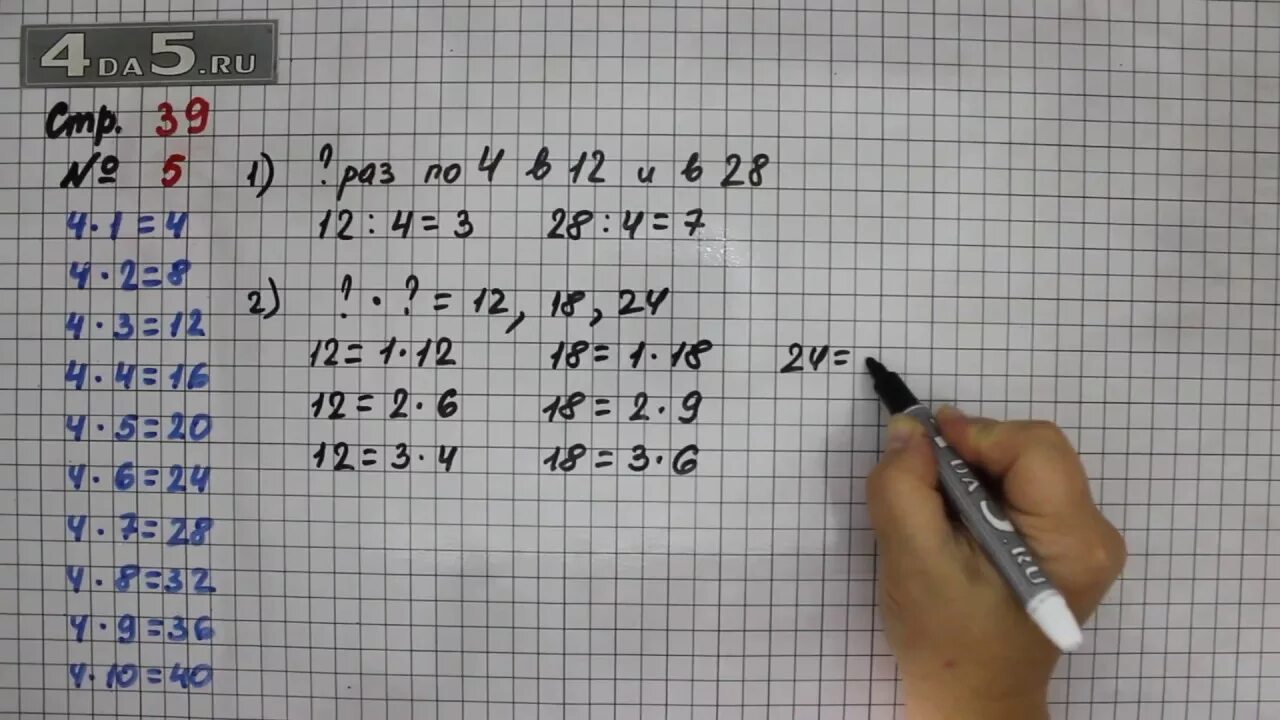 4DA5.RU
Стр. 39
№ 5
4·1=4
4·2=8
4·3=12
4·4=16
4·5=20
4·6=24
4·7=28
4·8=32
4·9=36
4·10=40
1) ? раз по 4 в 12 и в 28
12:4=3 28:4=7
2) ?·?=12, 18, 24
12=1·12 18=1·18 24=
12=2·6 18=2·9
12=3·4 18=3·6
DA5.RU